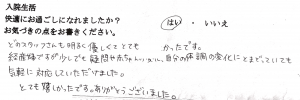 入院生活
快適にお過ごしになれましたか？ はい ・ いいえ
お気づきの点をお書きください。
どのスタッフさんも明るく優しくてとても かったです。
経産婦ですが少しでも疑問や赤ちゃん 、自分の体調の変化にとまどっていても
気軽に対応していただけました。
とても嬉しかったです。ありがとうございました。